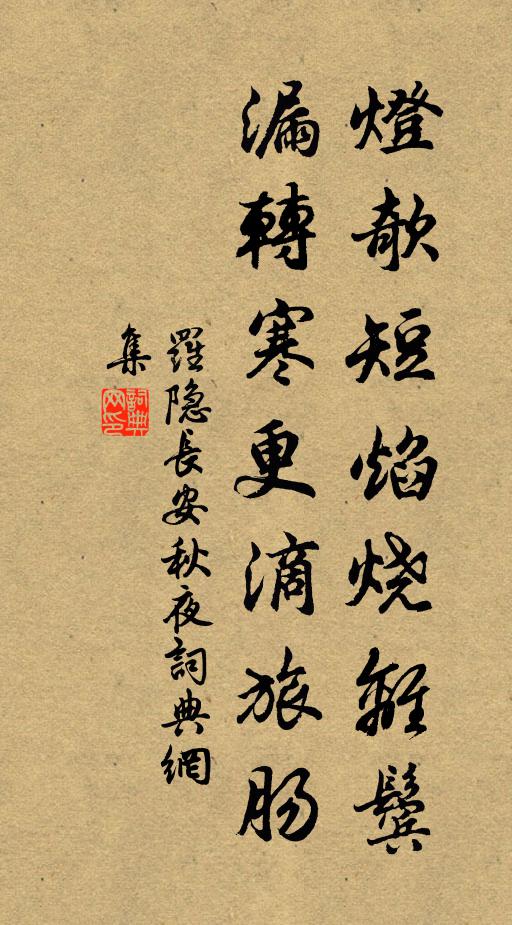 燈欹短焰烧離鬢
漏轉寒更滴旅肠
羅隐長安秋夜詞典網
集
詞典
网印